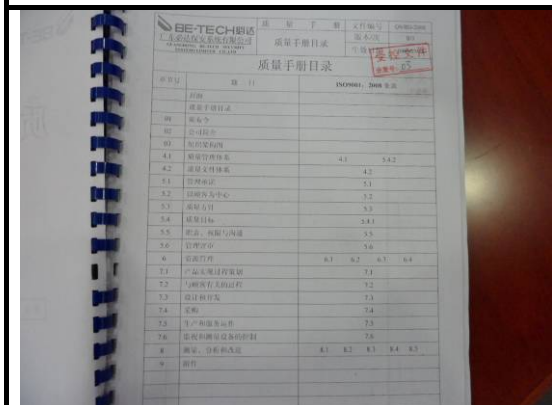 BE-TECH必达
广东必达保安系统有限公司
GUANGDONG BE-TECH SECURITY
质 量 手 册
文件编号
质量手册目录
版本/次
受控文件
质量手册目录
章节号
ISO9001：2008
封面
质量手册目录
01 颁布令
02 公司简介
03 组织架构图
4.1 质量管理体系 4.1 5.4.2
4.2 质量文件体系 4.2
5.1 管理承诺 5.1
5.2 以顾客为中心 5.2
5.3 质量方针 5.3
5.4 质量目标 5.4.1
5.5 职责、权限与沟通 5.5
5.6 管理评审 5.6
6 资源管理 6.1 6.2 6.3 6.4
7.1 产品实现过程策划 7.1
7.2 与顾客有关的过程 7.2
7.3 设计和开发 7.3
7.4 采购 7.4
7.5 生产和服务运作 7.5
7.6 监视和测量设备的控制 7.6
8 测量、分析和改进 8.1 8.2 8.3 8.4 8.5
9 附件